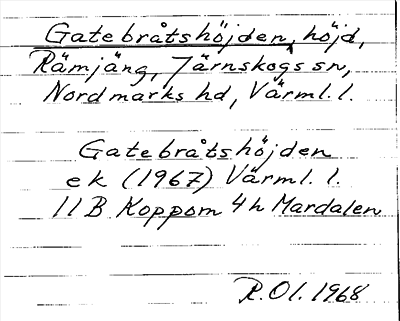 Gatebråtshöjden, höjd,
Rämjäng, Järnskogs sn,
Nordmarks hd, Värml. l.
Gatebråtshöjden
ek (1967) Värml. l.
11B Koppom 4h Mardalen
R. Ol. 1968